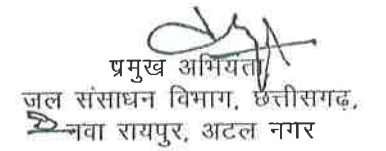 प्रमुख अभियंता
जल संसाधन विभाग, छत्तीसगढ़,
नवा रायपुर, अटल नगर